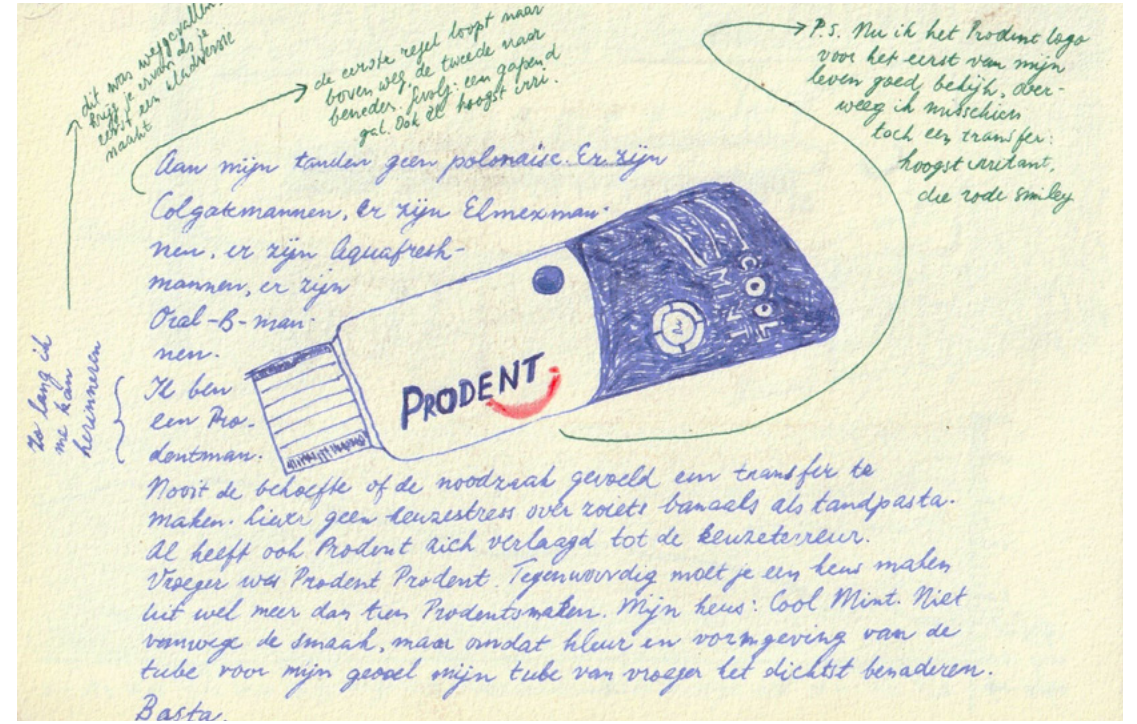 dit was weggevallen.
krijg je ervan als je
eerst een kladversie
maakt
de eerste regel loopt naar
boven weg de tweede naar
beneden. Gevolg: een gapend
gat. Ook al hoogst irri.
P.S. Nu ik het Prodent logo
voor het eerst van mijn
leven goed bekijk, over-
weeg ik misschien
toch een transfer:
hoogst irritant,
die rode smiley
Aan mijn tanden geen polonaise. Er zijn
Colgatemannen, er zijn Elmexman-
nen, er zijn Aquafresh-
mannen, er zijn
Oral-B-man-
nen.
Zo lang ik
me kan
herinneren
Ik ben
een Pro-
dentman.
COOL
MINT
PRODENT
Nooit de behoefte of de noodzaak gevoeld een transfer te
maken. Liever geen keuzestress over zoiets banaals als tandpasta.
Al heeft ook Prodent zich verlaagd tot de keuzeterreur.
Vroeger was Prodent Prodent. Tegenwoordig moet je een keus maken
uit wel meer dan tien Prodentsmaken. Mijn keus: Cool Mint. Niet
vanwege de smaak, maar omdat kleur en vormgeving van de
tube voor mijn gevoel mijn tube van vroeger het dichtst benaderen.
Basta.